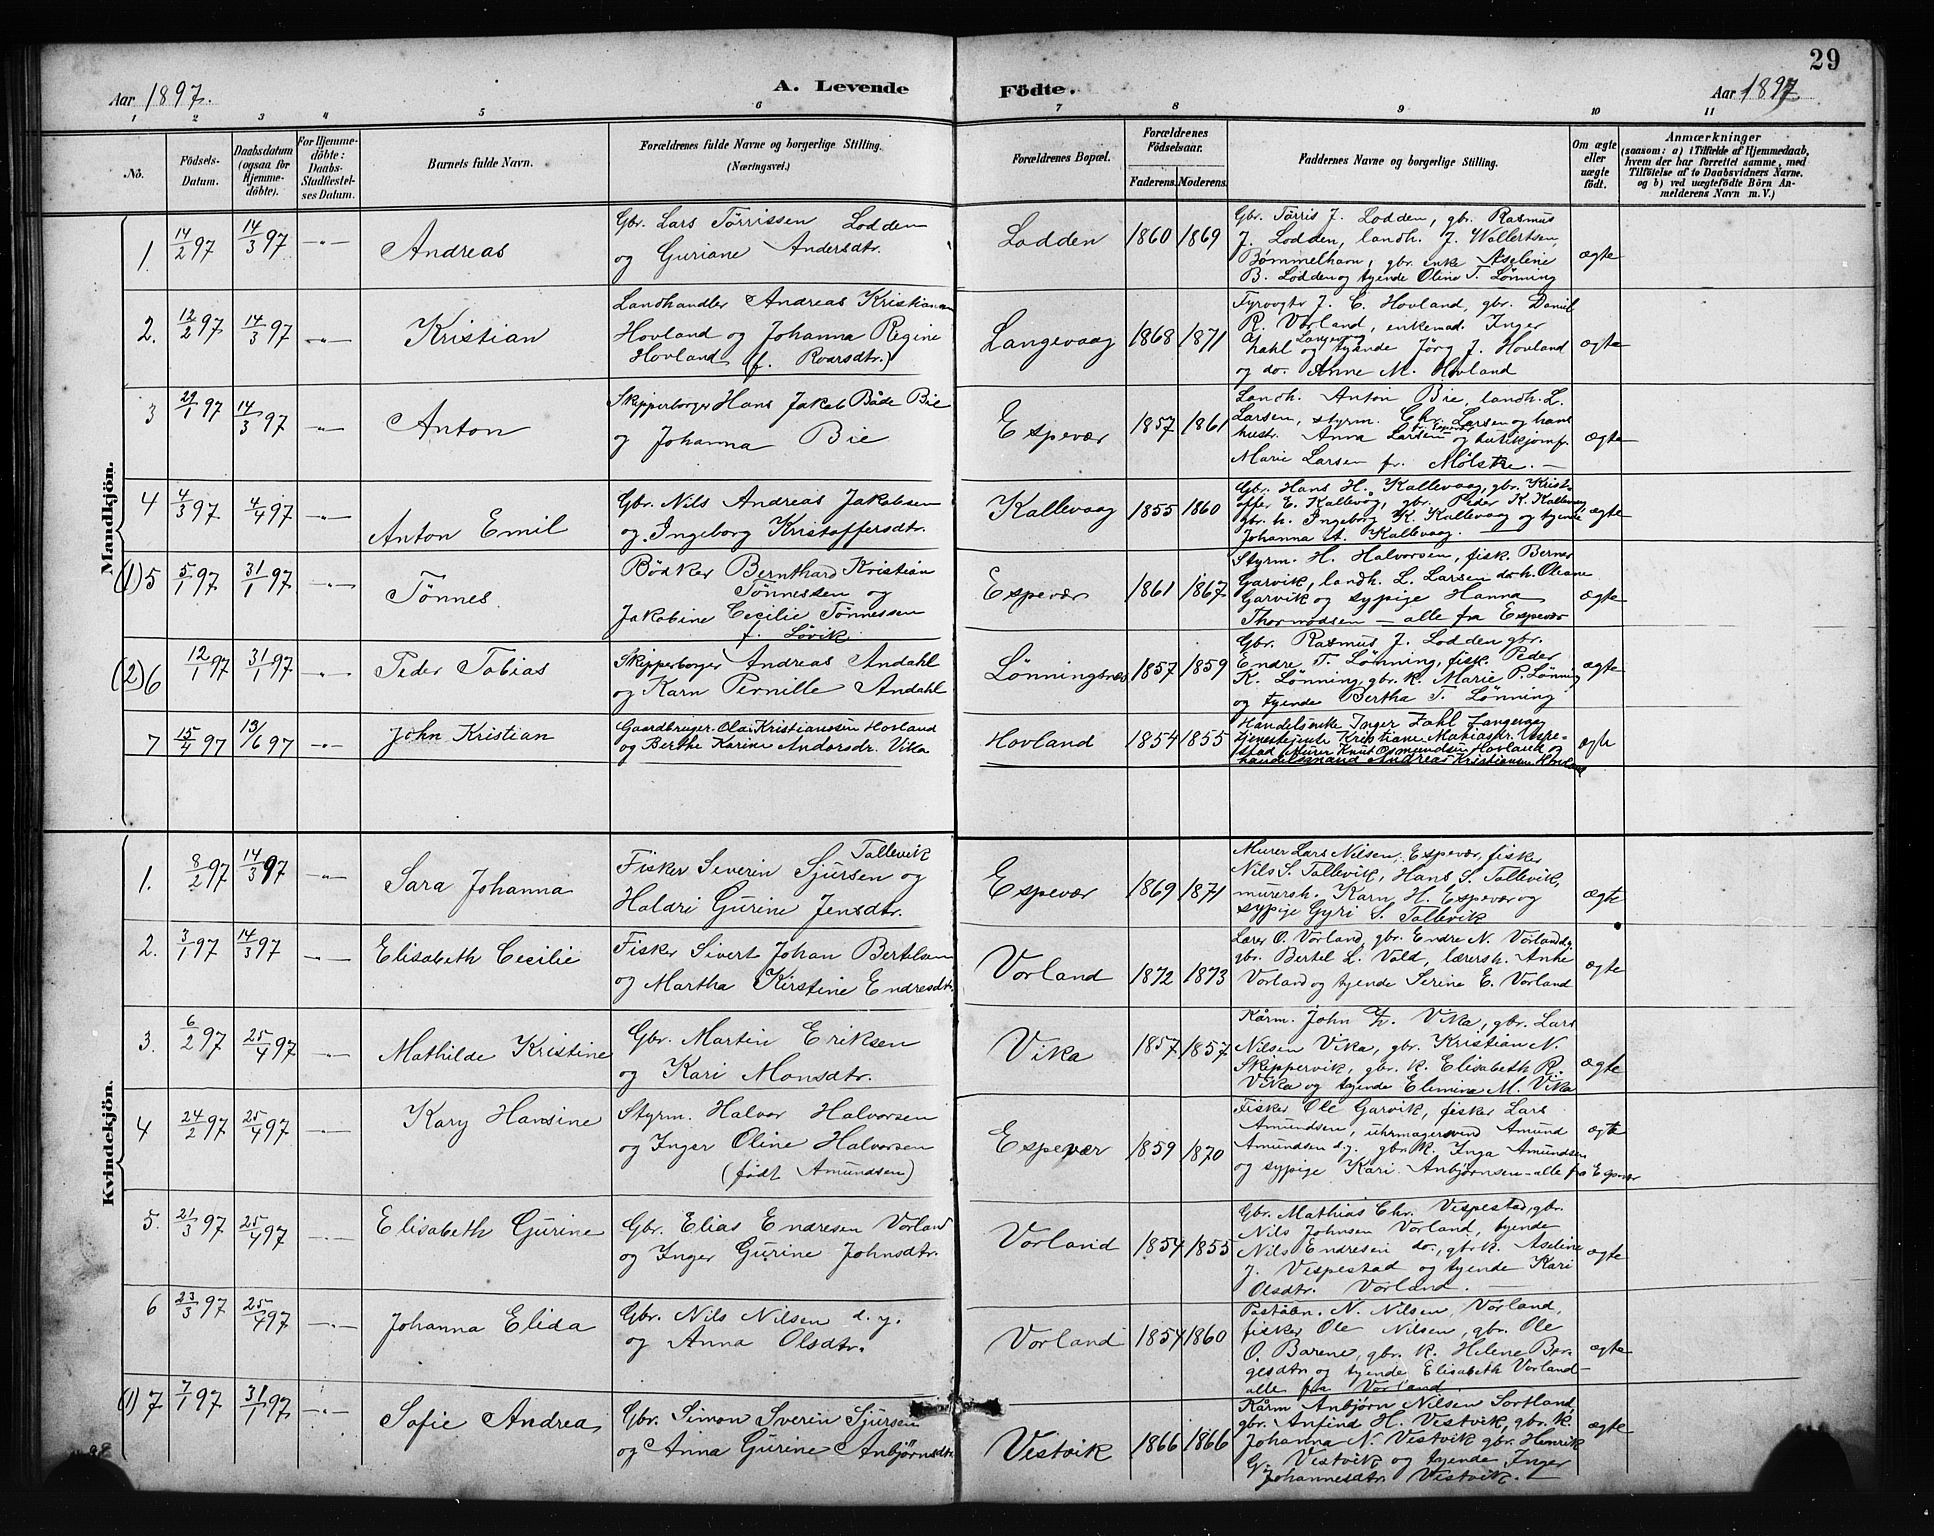 29
Aar 1897.
A. Levende
Födte.
Aar 1897
1 2 3 4 5 6 7 8 9 10 11
No.
Födsels-
Datum.
Daabsdatum
(ogsaa for
Hjemme-
döbte).
For Hjemme-
döbte:
Daabs-
Stadfæstel-
ses Datum.
Barnets fulde Navn.
Forældrenes fulde Navne og borgerlige Stilling.
(Næringsvei.)
Forældrenes Bopæl.
Forældrenes
Födselsaar.
Faderens. Moderens.
Faddernes Navne og borgerlige Stilling.
Om ægte
eller
uægte
født.
Anmærkninger
(saasom: a) i Tilfælde af Hjemmedaab,
hvem der har forrettet samme, med
Tilföielse af to Daabsvidners Navne,
og b) ved uægtefödte Börn An-
melderens Navn m. V.)
Mandkjön.
1. 14/2 97 14/3 97 -"- Andreas
Gbr. Lars Tørrissen Lodden
og Guriane Andersdtr.
Lodden 1860 1869
Gbr. Tørris J. Lodden, gbr. Rasmus
J. Lodden, landh. J. Wallertsen,
Bømmelhavn, gbr. enke Aseline
B. Lodden og tjende Oline T. Lønning
ægte
2. 12/2 97 14/3 97 -"- Kristian
Landhandler Andreas Kristiansen
Hovland og Johanna Regine
Hovland (f. Roarsdtr.)
Langevaag 1868 1871
Fyrvogter J. C. Hovland, gbr. Daniel
R. Vorland, enkemad. Inger
Zahl Langevaag og tjende Jørg J. Hovland
og do. Anne M. Hovland
ægte
3 29/1 97 14/3 97 -"- Anton
Skipperborger Hans Jakob Både Bie
og Johanna Bie
Espevær 1857 1861
Landh. Anton Bie, landh. L.
Larsen, styrm. Chr. Larsen og hans
hustr. Anna Larsen fr. Espevær og butikjomfr.
Marie Larsen fr. Mølstre. —
ægte
4 4/3 97 4/4 97 -"- Anton Emil
Gbr. Nils Andreas Jakobsen
og Ingeborg Kristoffersdtr.
Kallevaag 1855 1860
Gbr. Hans H. Kallevaag, gbr. Krist-
offer E. Kallevåg, gbr. Peder K. Kallevaag
gbr. h. Ingeborg K. Kallevaag og tjende
Johanna A. Kallevaag.
ægte
(1) 5 5/1 97 31/1 97 -"- Tønnes
Bødker Bernthard Kristian
Tønnessen og
Jakobine Cecilie Tønnessen
f. Løvik
Espevær 1861 1867
Styrm. H. Halvorsen, fisk. Berner
Garvik, landh. L. Larsen do h. Oleane
Garvik og sypige Hanna
Thormodsen — alle fra Espevær
ægte
(2) 6 12/1 97 31/1 97 -"- Peder Tobias
Skipperborger Andreas Andahl
og Karn Pernille Andahl
Lønningsnes 1857 1859
Gbr. Rasmus J. Lodden gbr.
Endre T. Lønning, fisk. Peder
K. Lønning, gbr. k. Marie P. Lønning
og tjende Bertha T. Lønning
ægte
7 15/4 97 13/6 97 -"- John Kristian
Gaardbruger Ola Kristiansen Hovland
og Berthe Karine Andersdr. Vika
Hovland 1854 1855
Handelsenke Inger Zahl Langevag
tjenestejente Kristiane Matiasdr. Vespe-
stad Murer Knut Osmundsen Hovland og
handelsmand Andreas Kristiansen Hovland
ægte
Kvindekjön.
1. 8/2 97 14/3 97 -"- Sara Johanna
Fisker Severin Sjursen Tallevik og
Haldri Gurine Jensdtr.
Espevær 1869 1871
Murer Lars Nilsen, Espevær, fisker
Nils S. Tallevik, Hans S. Tallevik,
murersh. Karn H. Espevær og
sypige Gyri S. Tallevik
ægte
2. 3/1 97 14/3 97 -"- Elisabeth Cecilie
Fisker Sivert Johan Bertelsen
og Martha Kirstine Endresdtr.
Vorland 1872 1873
Lærer O. Vorland, gbr. Endre N. Vorland,
gbr. Bertel L. Vold, lærersk. Anne
Vorland og tjende Serine E. Vorland
ægte
3. 6/2 97 25/4 97 -"- Mathilde Kristine
Gbr. Martin Eriksen
og Kari Monsdtr.
Vika 1857 1857
Kårm. John Th. Vika, gbr. Lars
Nilsen Vika, gbr. Kristian N.
Skippervik, gbr. k. Elisabeth R.
Vika og tjende Elemine M. Vika
ægte
4 24/2 97 25/4 97 -"- Kary Hansine
Styrm. Halvor Halvorsen
og Inger Oline Halvorsen
(født Amundsen)
Espevær 1859 1870
Fisker Ole Garvik, fisker Lars
Amundsen, uhrmagersvend Amund
Amundsen d.y. gbr. k. Inga Amundsen
og sypige Kari Anbjørnsen - alle fra Espevær
ægte
5. 21/3 97 25/4 97 -"- Elisabeth Gurine
Gbr. Elias Endresen Vorland
og Inger Gurine Johnsdtr.
Vorland 1854 1855
Gbr. Mathias Chr. Vespestad, gbr.
Nils Johnsen Vorland, tjende
Nils Endresen do., gbr. k. Aseline
J. Vespestad og tjende Kari
Olsdtr. Vorland. —
ægte
6 23/3 97 25/4 97 -"- Johanna Elida
Gbr. Nils Nilsen d. y.
og Anna Olsdtr.
Vorland 1854 1860
Poståbn. N. Nilsen, Vorland,
fisker Ole Nilsen, gbr. Ole
O. Barene, gbr. k. Helene Bør-
gesdtr. og tjende Elisabeth Vorland
alle fra Vorland.
ægte
(1) 7 7/1 97 31/1 97 -"- Sofie Andrea
Gbr. Simon Sverin Sjursen
og Anna Gurine Anbjørnsdtr.
Vestvik 1866 1866
Kårm Anbjørn Nilsen Sortland,
gbr. Anfind H. Vestvik, gbr. k.
Johanna N. Vestvik gbr. Henrik
G. Vestvik og tjende Inger
Johannesdtr. Vestvik. —
ægte